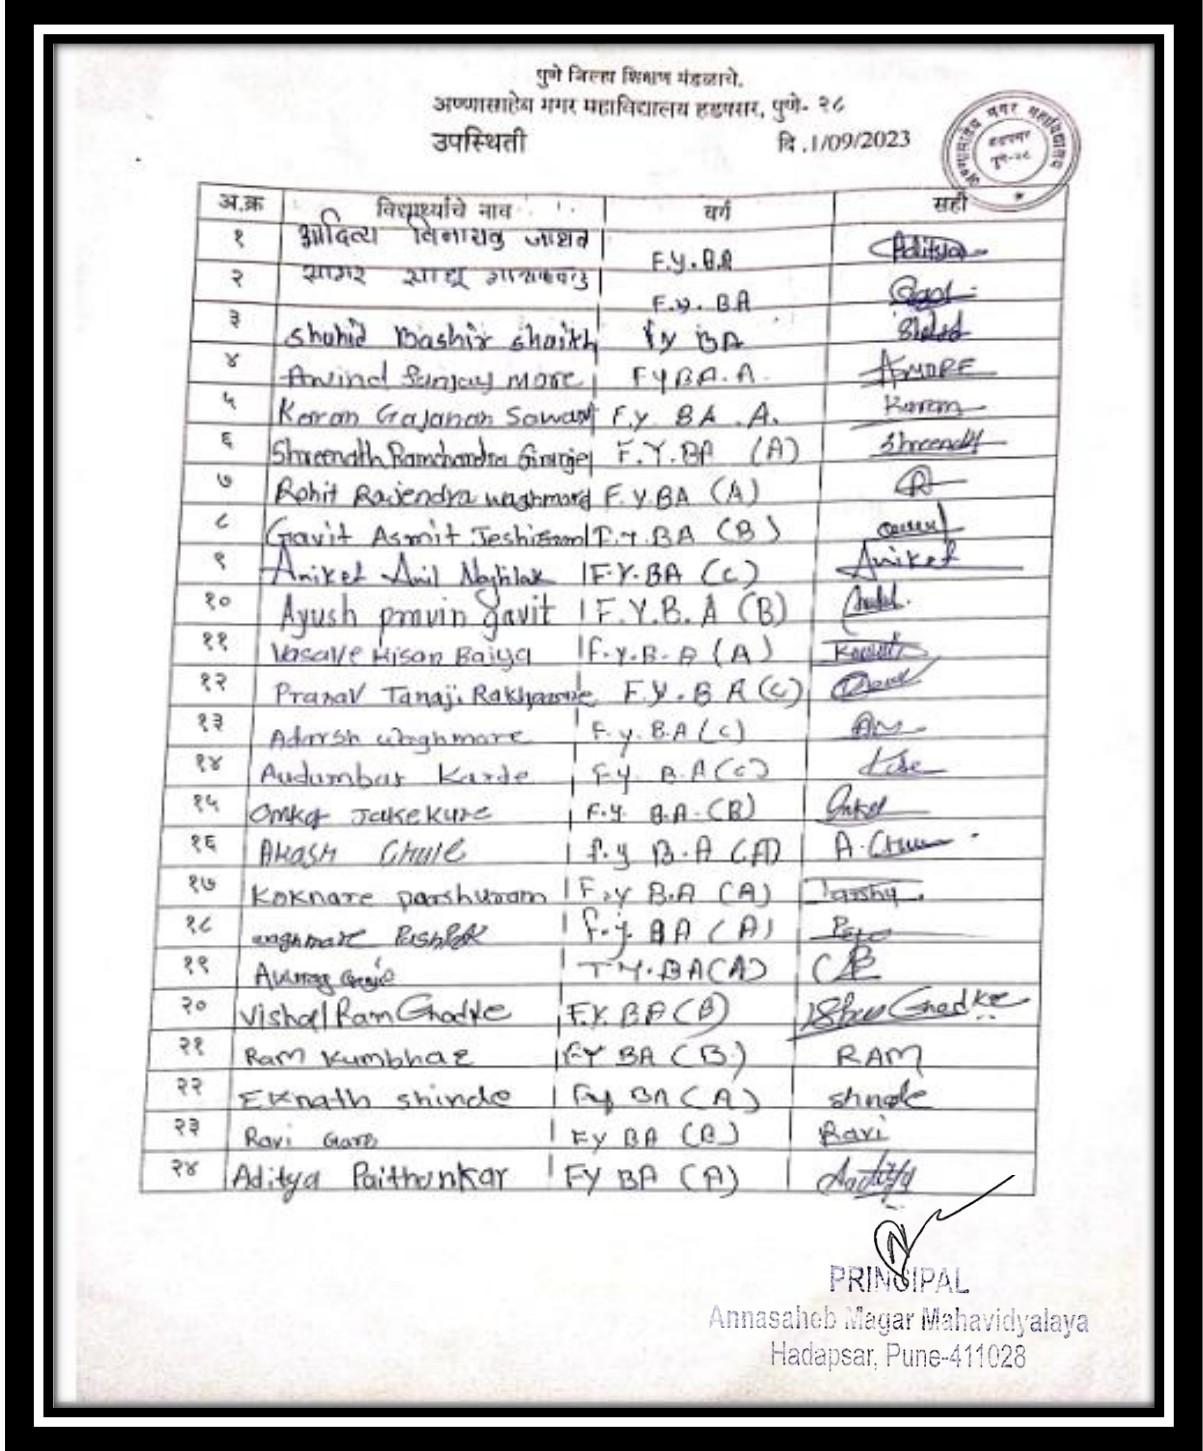 पुणे जिल्हा शिक्षण मंडळाचे,
अण्णासाहेब मगर महाविद्यालय हडपसर, पुणे- २८
उपस्थिती दि .1/09/2023
अण्णासाहेब मगर महाविद्यालय
हडपसर
पुणे-२८
अ.क्र विद्यार्थ्यांचे नाव वर्ग सही
१ आदित्य विनायक जाधव F.Y.BA Aditya
२ सागर F.Y. BA
३ Shahid Bashir Shaikh Fy BA Shahid
४ Arvind Sanjay More FYBA.A. AMORE
५ Karan Gajanan Sawant F.Y. BA .A. Karan
६ Shreenath Ramchandra F.Y.BA (A) Shreenath
७ Rohit Rajendra waghmare F.Y.BA (A)
८ Gavit Asmit F.Y.BA (B)
९ Aniket Anil F.Y.BA (C) Aniket
१० Ayush pravin gavit F.Y.B.A (B)
११ Vasave Kisan Baiya F.Y.B.A (A)
१२ Pranav Tanaji F.Y.BA(C)
१३ Adarsh waghmare F.y. B.A (C)
१४ Audumbar Karde F.y. B.A (C)
१५ Omkar F.y. B.A.(B)
१६ Akash Ghule F.y B.A (A)
१७ Koknare parshuram F.y B.A (A)
१८ waghmare F.y. BA (A)
१९ Anurag T.Y.BA(A)
२० Vishal Ram Ghadke F.Y. BA (B) Ghadke
२१ Ram Kumbhar FY BA (B) RAM
२२ Eknath shinde Fy BA (A) shinde
२३ Ravi FY BA (B) Ravi
२४ Aditya Paithankar FY BA (A)
PRINCIPAL
Annasaheb Magar Mahavidyalaya
Hadapsar, Pune-411028